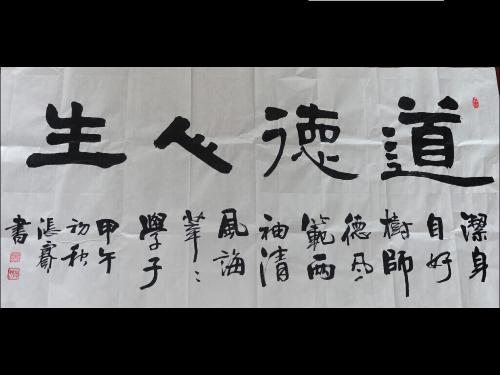 道德人生
潔身
自好
樹師
德風
範兩
袖清
風誨
莘〻
學子
甲午
初秋
張
書